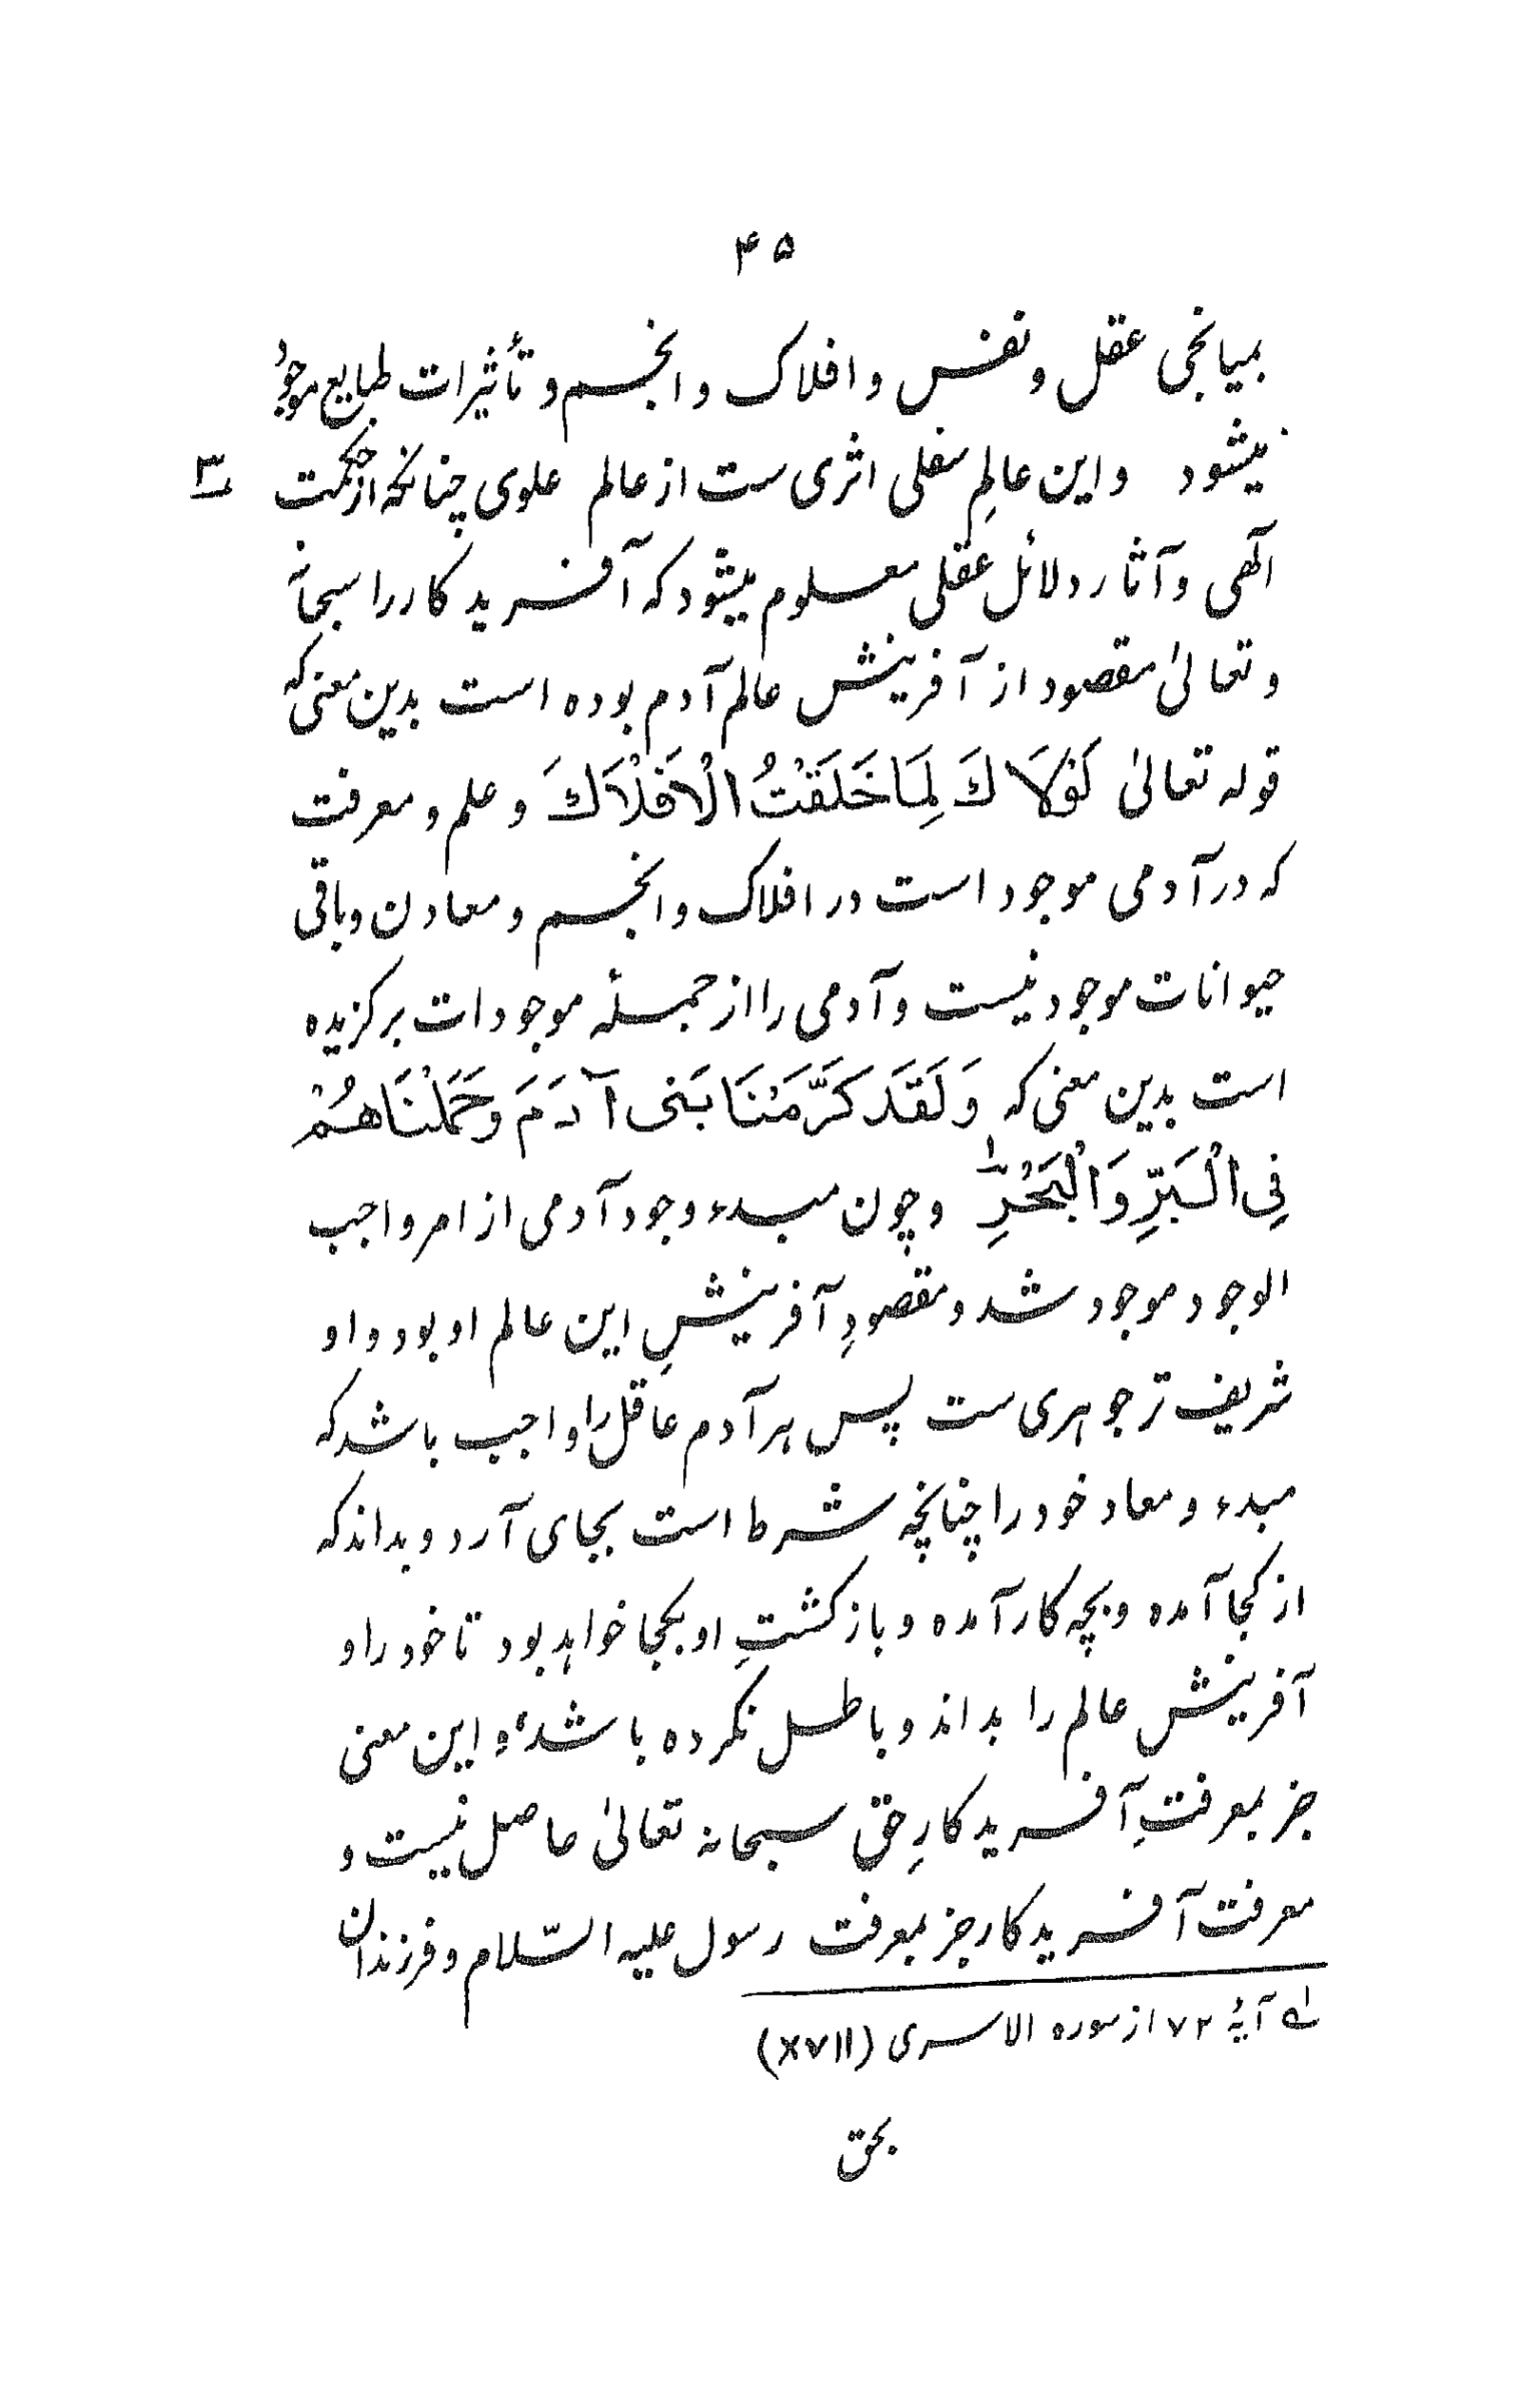 ۴۵
بمیانجی عقل و نفس و افلاک و انجم و تأثیرات طبایع موجود
میشود واین عالمِ سفلی اثری ست از عالم علوی چنانکه از حکمت ۳
آلهی و آثار دلائل عقلی معلوم میشود که آفریدکار را سبحانه
و تعالیٰ مقصود از آفرینش عالم آدم بوده است بدین معنی که
قوله تعالیٰ لَوْلَاكَ لِمَا خَلَقْتُ الْاَفْلَاكَ و علم و معرفت
که در آدمی موجود است در افلاک و انجم و معادن و باقی
حیوانات موجود نیست و آدمی را از جملهٔ موجودات برکزیده
است بدین معنی که وَلَقَدَ كَرَّمْنَا بَنی آدَمَ وَحَمَلْنَاهُمْ
فِی الْبَرِّ وَالْبَحْرِ۱ و چون مبدء وجود آدمی از امر واجب
الوجود موجود شد و مقصودِ آفرینشِ این عالم او بود و او
شریف تر جوهری ست پس هر آدم عاقل را واجب باشد که
مبدء و معاد خود را چنانچه شرط است بجای آرد و بداند که
از کجا آمده و بچه کار آمده و بازکشتِ او بکجا خواهد بود تا خود را و
آفرینش عالم را بداند و باطل نکرده باشد و این معنی
جز بمعرفتِ آفریدکارِ حق سبحانه تعالیٰ حاصل نیست و
معرفت آفریدکار جز بمعرفت رسول علیه السّلام و فرزندان
۱ آیهٔ ۷۲ از سوره الاسری (XVII)
بحق